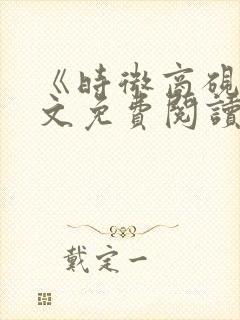 《時微商硯
文免費閱讀
戴定一